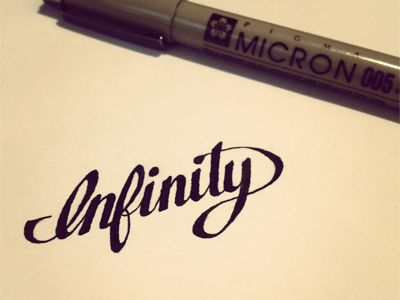 PIGMA
MICRON 005
Infinity